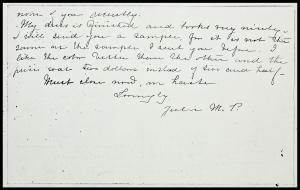 now & you recently.
My dress is finished and looks very nicely.
I will send you a sample, for it is not the
same as the sample I sent you before. I
like the color better than the other and the
price was two dollars instead of two and half.
Must close now, in haste
Lovingly
Julia M. P.